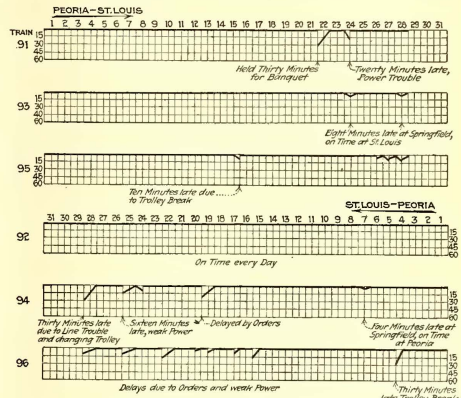 PEORIA-ST.LOUIS
1 2 3 4 5 6 7 8 9 10 11 12 13 14 15 16 17 18 19 20 21 22 23 24 25 26 27 28 29 30 31
TRAIN
91
15
30
45
60
Held Thirty Minutes
for Banquet
Twenty Minutes late,
Power Trouble
93
15
30
45
60
Eight Minutes late at Springfield,
on Time at St.Louis
95
15
30
45
60
Ten Minutes late due
to Trolley Break
ST.LOUIS-PEORIA
31 30 29 28 27 26 25 24 23 22 21 20 19 18 17 16 15 14 13 12 11 10 9 8 7 6 5 4 3 2 1
92
15
30
45
60
On Time every Day
94
15
30
45
60
Thirty Minutes late
due to Line Trouble
and changing Trolley
Sixteen Minutes
late, weak Power
Delayed by Orders
Four Minutes late at
Springfield, on Time
at Peoria
96
15
30
45
60
Delays due to Orders and weak Power
Thirty Minutes
late Trolley Break